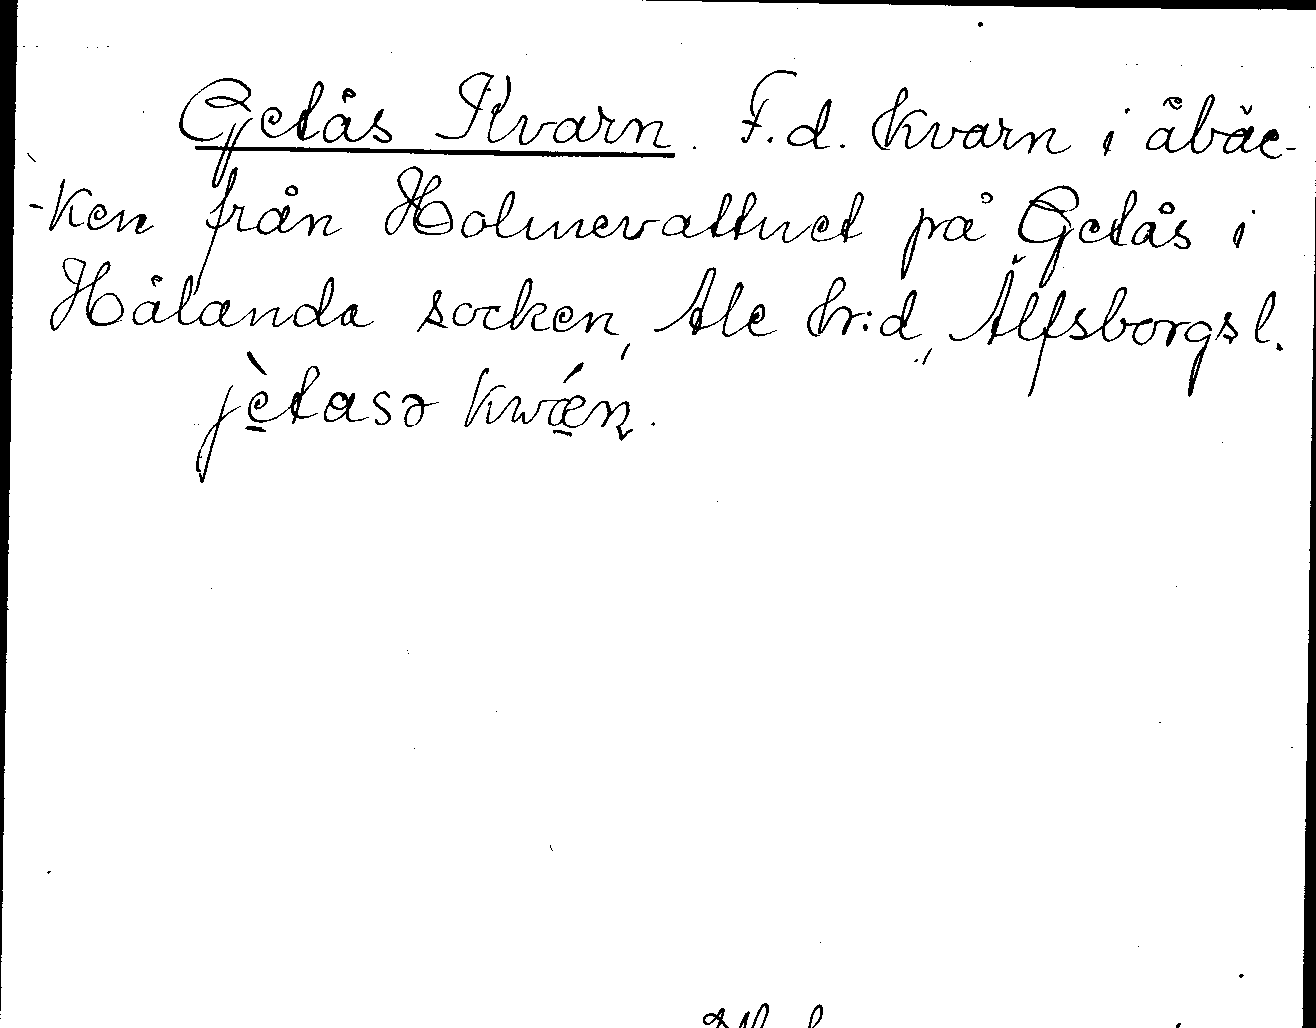 Getås Kvarn. F.d. kvarn i åbäc-
-ken från Holmevattnet på Getås i
Hålanda socken, Ale hr:d, Älfsborgs l.
jètasə kwǽn.